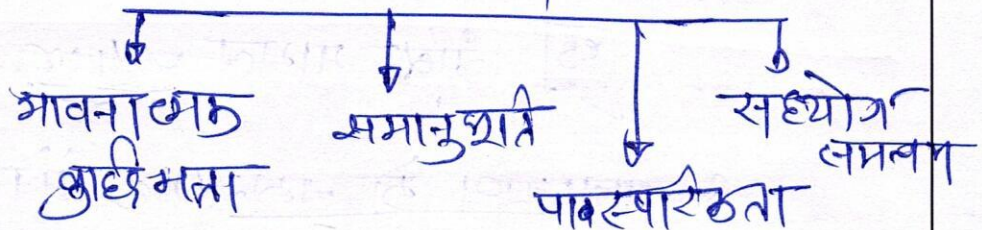 भावनात्मक
बुद्धिमत्ता
समानुभूति
पारस्परिकता
सहयोग
समन्वय